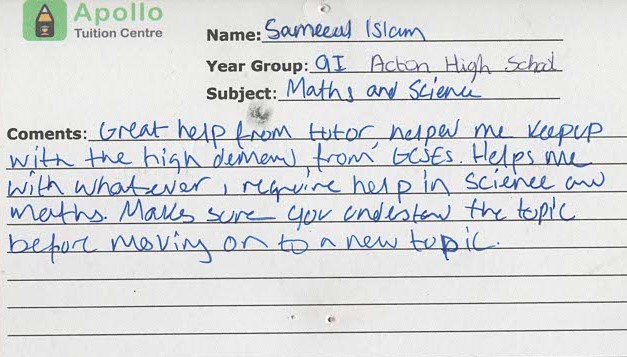 Apollo
Tuition Centre
Name: Sameeul Islam
Year Group: 9I Acton High School
Subject: Maths and Science
Coments: Great help from tutor, helped me keepup
with the high demand, from GCSEs. Helps me
with whatever I require help in science and
maths. Makes sure you understand the topic
before moving on to a new topic.